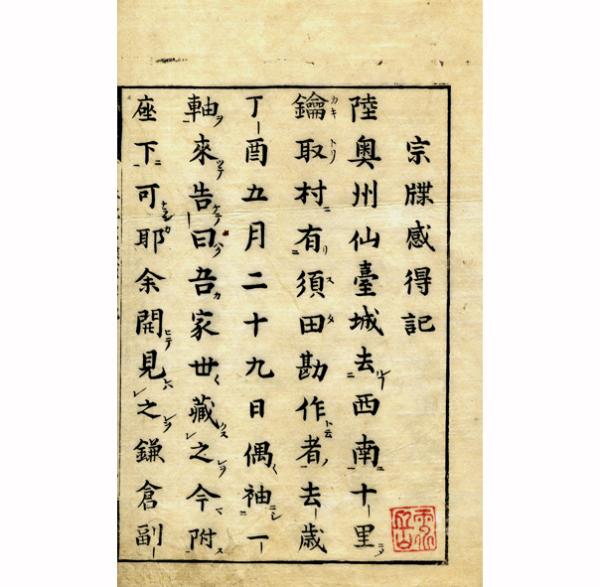 宗牒感得記
陸奧州仙臺城去西南十里
鑰取村有須田勘作者去歳
丁酉五月二十九日偶袖一
軸來告曰吾家世藏之今附
座下可耶余開見之鎌倉副